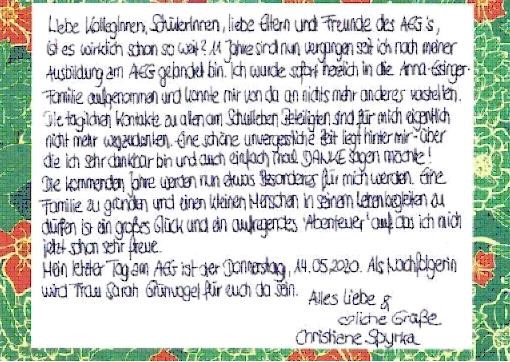 Liebe KollegInnen, SchülerInnen, liebe Eltern und Freunde des AEG's,
ist es wirklich schon so weit? 11 Jahre sind nun vergangen seit ich nach meiner
Ausbildung am AEG gelandet bin. Ich wurde sofort herzlich in die Anna-Essinger-
Familie aufgenommen und konnte mir von da an nichts mehr anderes vorstellen.
Die täglichen Kontakte zu allen am Schulleben Beteiligten sind für mich eigentlich
nicht mehr wegzudenken. Eine schöne unvergessliche Zeit liegt hinter mir über
die ich sehr dankbar bin und auch einfach mal DANKE sagen möchte!
Die kommenden Jahre werden nun etwas Besonderes für mich werden. Eine
Familie zu gründen und einen kleinen Menschen in seinem Leben begleiten zu
dürfen ist ein großes Glück und ein aufregendes "Abenteuer" auf das ich mich
jetzt schon sehr freue.
Mein letzter Tag am AEG ist der Donnerstag, 14.05.2020. Als Nachfolgerin
wird Frau Sarah Grünvogel für euch da sein.
Alles Liebe &
♡liche Grüße
Christiane Spyrka